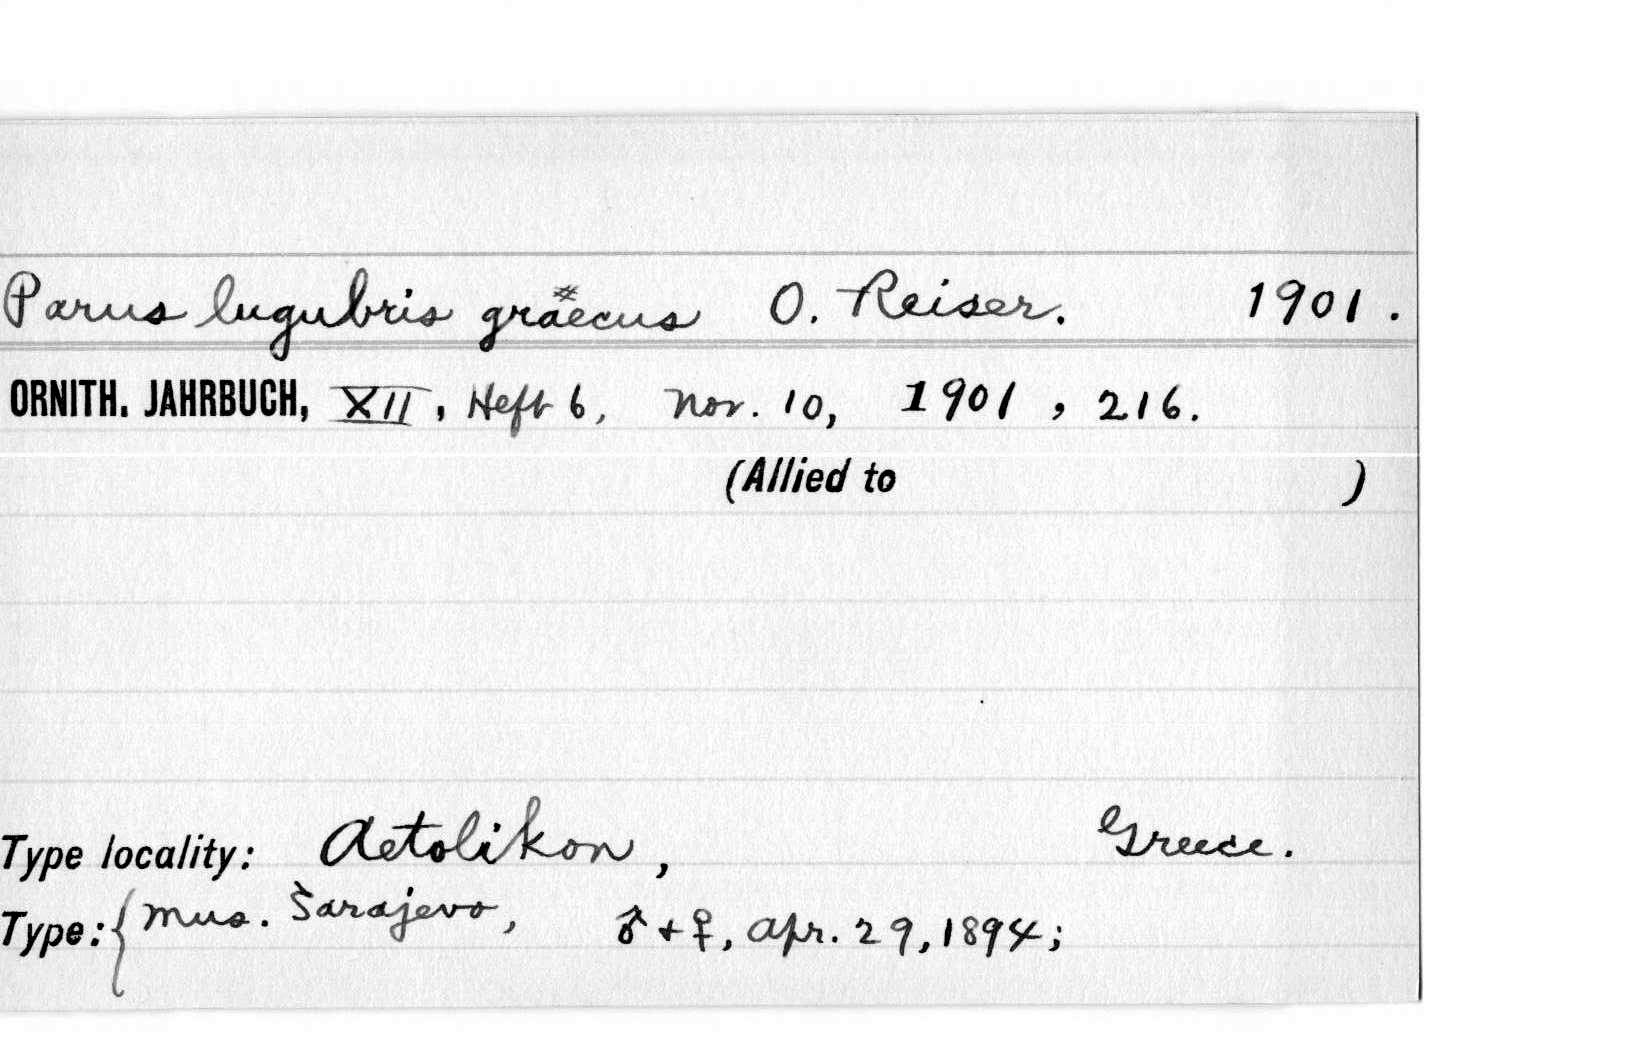 Parus lugubris graecus O. Reiser. 1901.
ORNITH. JAHRBUCH, XII, Heft 6, Nov. 10, 1901, 216.
(Allied to )
Type locality: Aetolikon, Greece.
Type: { Mus. Sarajevo, ♂ + ♀, Apr. 29, 1894;